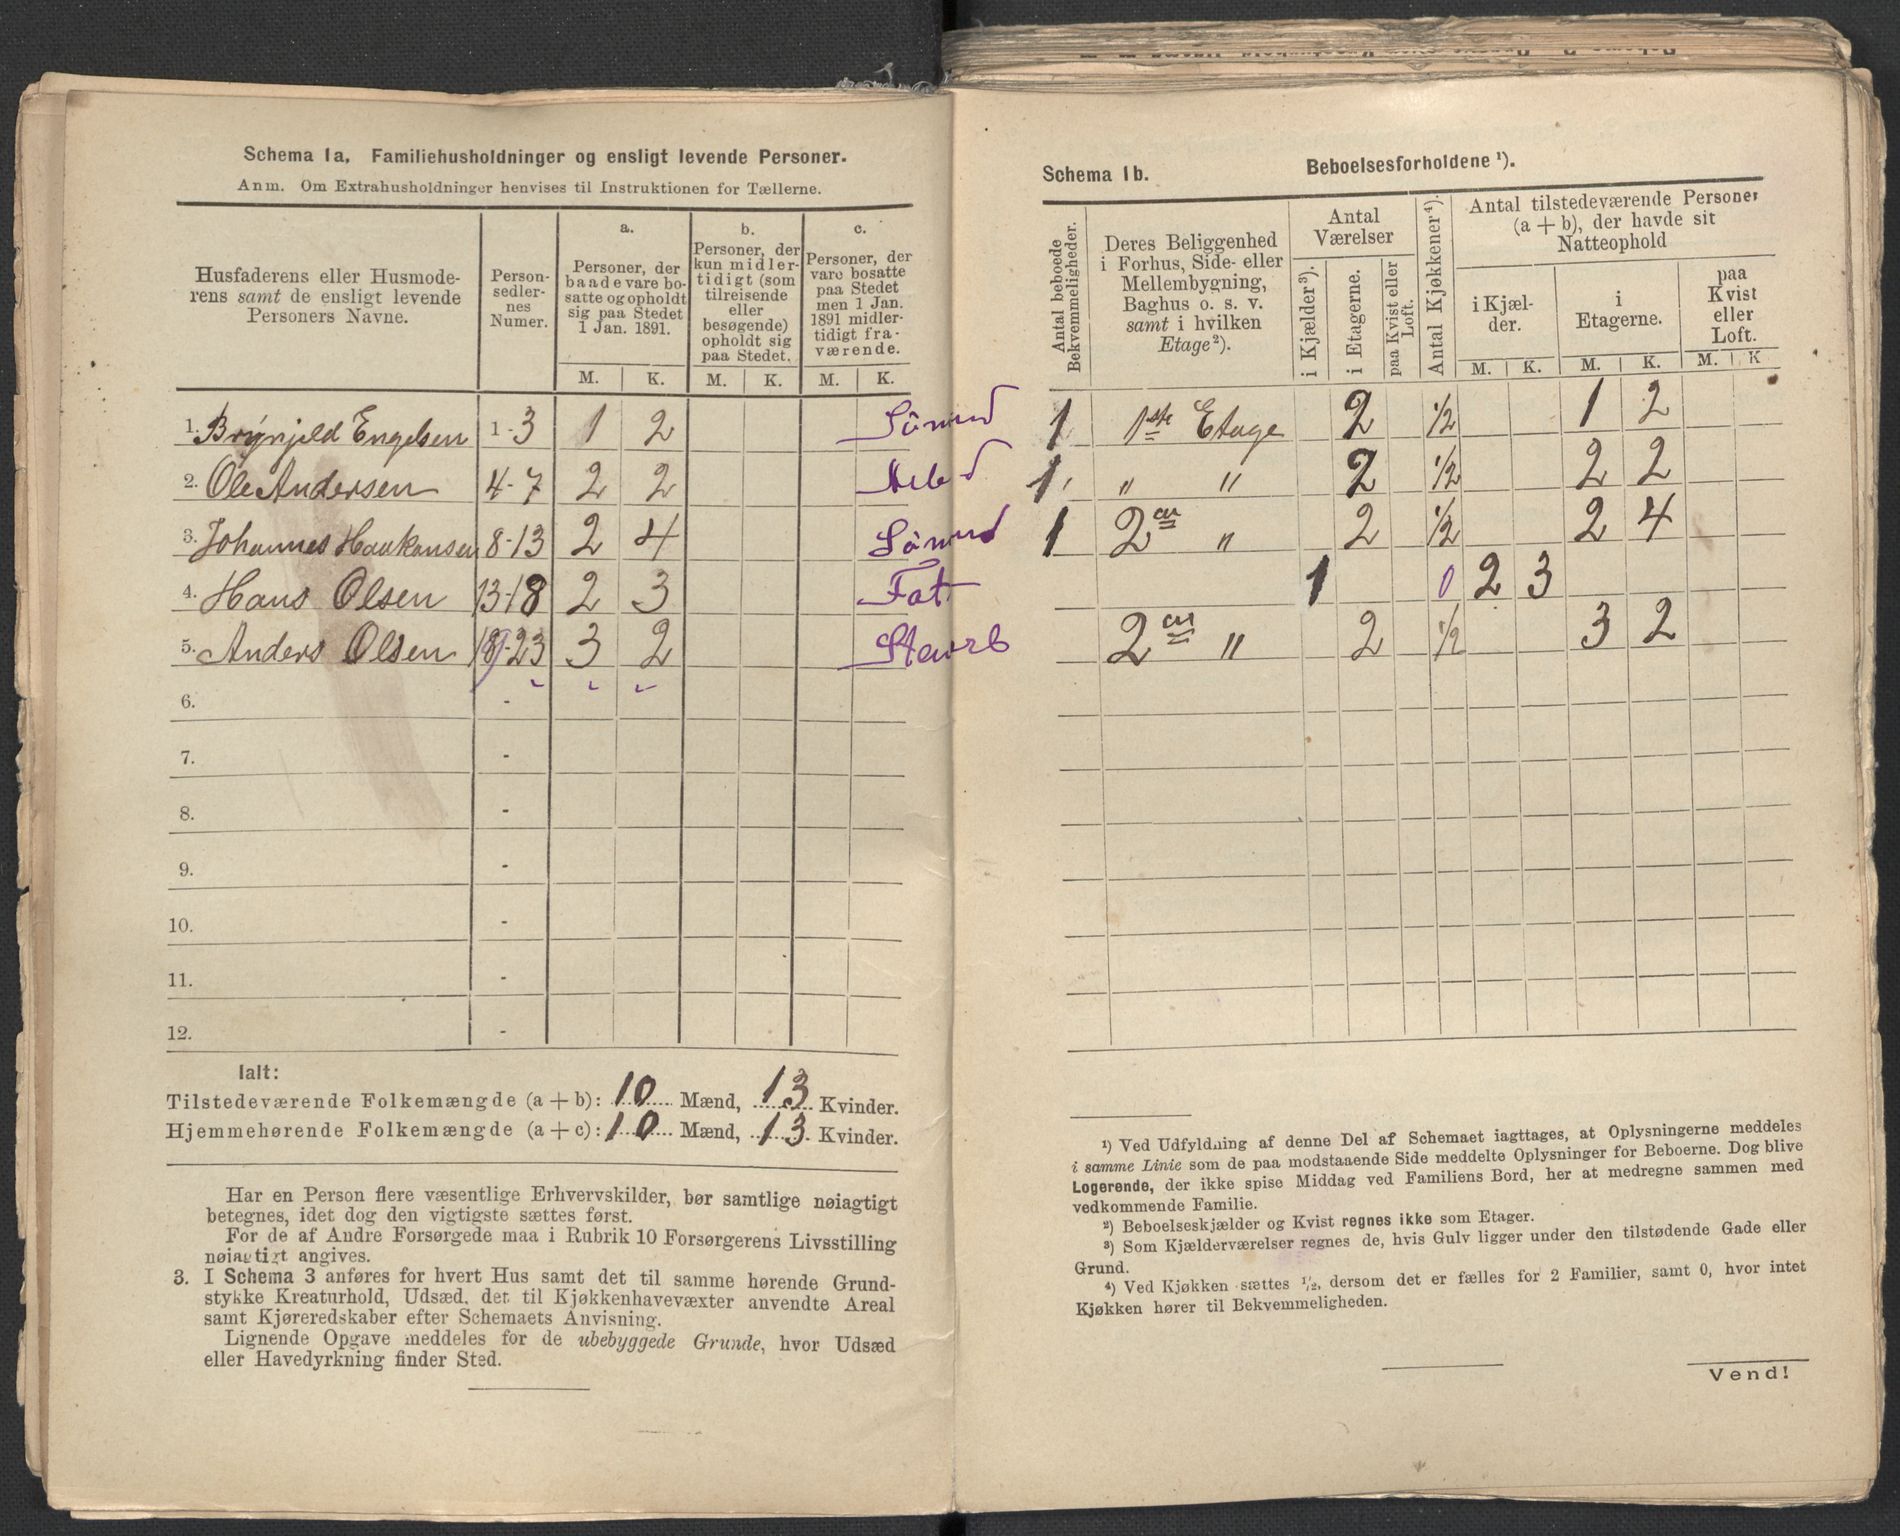 Schema 1a. Familiehusholdninger og ensligt levende Personer.
Anm. Om Extrahusholdninger henvises til Instruktionen for Tællerne.
Husfaderens eller Husmode-
rens samt de ensligt levende
Personers Navne.
Person-
sedler-
nes
Numer.
a.
Personer, der
baade vare bo-
satte og opholdt
sig paa Stedet
1 Jan. 1891.
b.
Personer, der
kun midler-
tidigt (som
tilreisende
eller
besøgende)
opholdt sig
paa Stedet.
c.
Personer, der
vare bosatte
paa Stedet
men 1 Jan.
1891 midler-
tidigt fra-
værende.
M. K. M. K. M. K.
1. Brynjeld Engelsen 1-3 1 2 Sömænd
2. Ole Andersen 4-7 2 2 Arbd
3. Johannes Haakonsen 8-13 2 4 Sömænd
4. Hans Olsen 13-18 2 3 Fat
5. Anders Olsen 19-23 3 2
6. -
7. -
8. -
9. -
10. -
11. -
12. -
Ialt:
Tilstedeværende Folkemængde (a + b): 10 Mænd, 13 Kvinder.
Hjemmehørende Folkemængde (a + c): 10 Mænd, 13 Kvinder.
Har en Person flere væsentlige Erhvervskilder, bør samtlige nøiagtigt
betegnes, idet dog den vigtigste sættes først.
For de af Andre Forsørgede maa i Rubrik 10 Forsørgerens Livsstilling
nøiagtigt angives.
3. I Schema 3 anføres for hvert Hus samt det til samme hørende Grund-
stykke Kreaturhold, Udsæd, det til Kjøkkenhavevæxter anvendte Areal
samt Kjøreredskaber efter Schemaets Anvisning.
Lignende Opgave meddeles for de ubebyggede Grunde, hvor Udsæd
eller Havedyrkning finder Sted.
Schema 1b. Beboelsesforholdene ¹).
Antal beboede
Bekvemmeligheder.
Deres Beliggenhed
i Forhus, Side- eller
Mellembygning,
Baghus o. s. v.
samt i hvilken
Etage²).
Antal
Værelser
i Kjælder³).
i Etagerne.
paa Kvist eller
Loft.
Antal Kjøkkener⁴).
Antal tilstedeværende Personer
(a + b), der havde sit
Natteophold
i Kjæl-
der.
i
Etagerne.
paa
Kvist
eller
Loft.
M. K. M. K. M. K
1 1ste Etage 2 1/2 1 2
1 " " 2 1/2 2 2
1 2en " 2 1/2 2 4
1 0 2 3
2en " 2 1/2 3 2
¹) Ved Udfyldning af denne Del af Schemaet iagttages, at Oplysningerne meddeles
i samme Linie som de paa modstaaende Side meddelte Oplysninger for Beboerne. Dog blive
Logerende, der ikke spise Middag ved Familiens Bord, her at medregne sammen med
vedkommende Familie.
²) Beboelseskjælder og Kvist regnes ikke som Etager.
³) Som Kjælderværelser regnes de, hvis Gulv ligger under den tilstødende Gade eller
Grund.
⁴) Ved Kjøkken sættes ½, dersom det er fælles for 2 Familier, samt 0, hvor intet
Kjøkken hører til Bekvemmeligheden.
Vend!